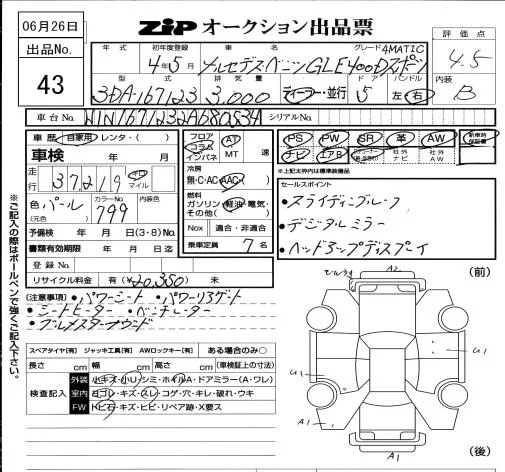 06月26日
出品No.
43
ZIP オークション出品票
評価点
4.5
内装
B
年式 初年度登録 車名 グレード
4年5月 メルセデス・ベンツGLE400Dスポーツ 4MATIC
型式 排気量 ドア ハンドル
3DA-167123 3,000 ディーラー・並行 5 左・右
車台No. シリアルNo.
車歴 自家用・レンタ・( )
車検 年 月
走行 37,219 キロ マイル
色 パール (元色) カラーNo. 799 内装色
予備検 年 月 日(3・8)No.
書類有効期限 年 月 日迄
登録No.
リサイクル料金 有(¥20,350) 未
フロア コラム インパネ AT MT 速
冷房
無・C・AC・AAC
燃料
ガソリン・軽油・電気・その他( )
Nox 適合・非適合
乗車定員 7名
PS PW SR 革 AW 新車時保証書
ナビ エアB 社外ナビ 社外AW
※上記太枠内は標準装備品
セールスポイント
・スライディングルーフ
・デジタルミラー
・ヘッドアップディスプレイ
[注意事項]・パワーシート・パワーリアゲート
・シートヒーター・ベンチレーター
・ブルメスターサウンド
スペアタイヤ[有] ジャッキ工具[有] AWロックキー[有] ある場合のみ○
長さ cm 幅 cm 高さ cm (車検証上の寸法)
検査記入
外装 小キズ・小リンシミ・ホイルA・ドアミラー(A・ワレ)
室内 ヨゴレ・キズ・スレ・コゲ・穴・キレ・破れ・ウキ
FW トビ石・キズ・ヒビ・リペア跡・X要ス
※ご記入の際はボールペンで強くご記入下さい。
(前)
A2
U1
U1
A1
A1
(後)